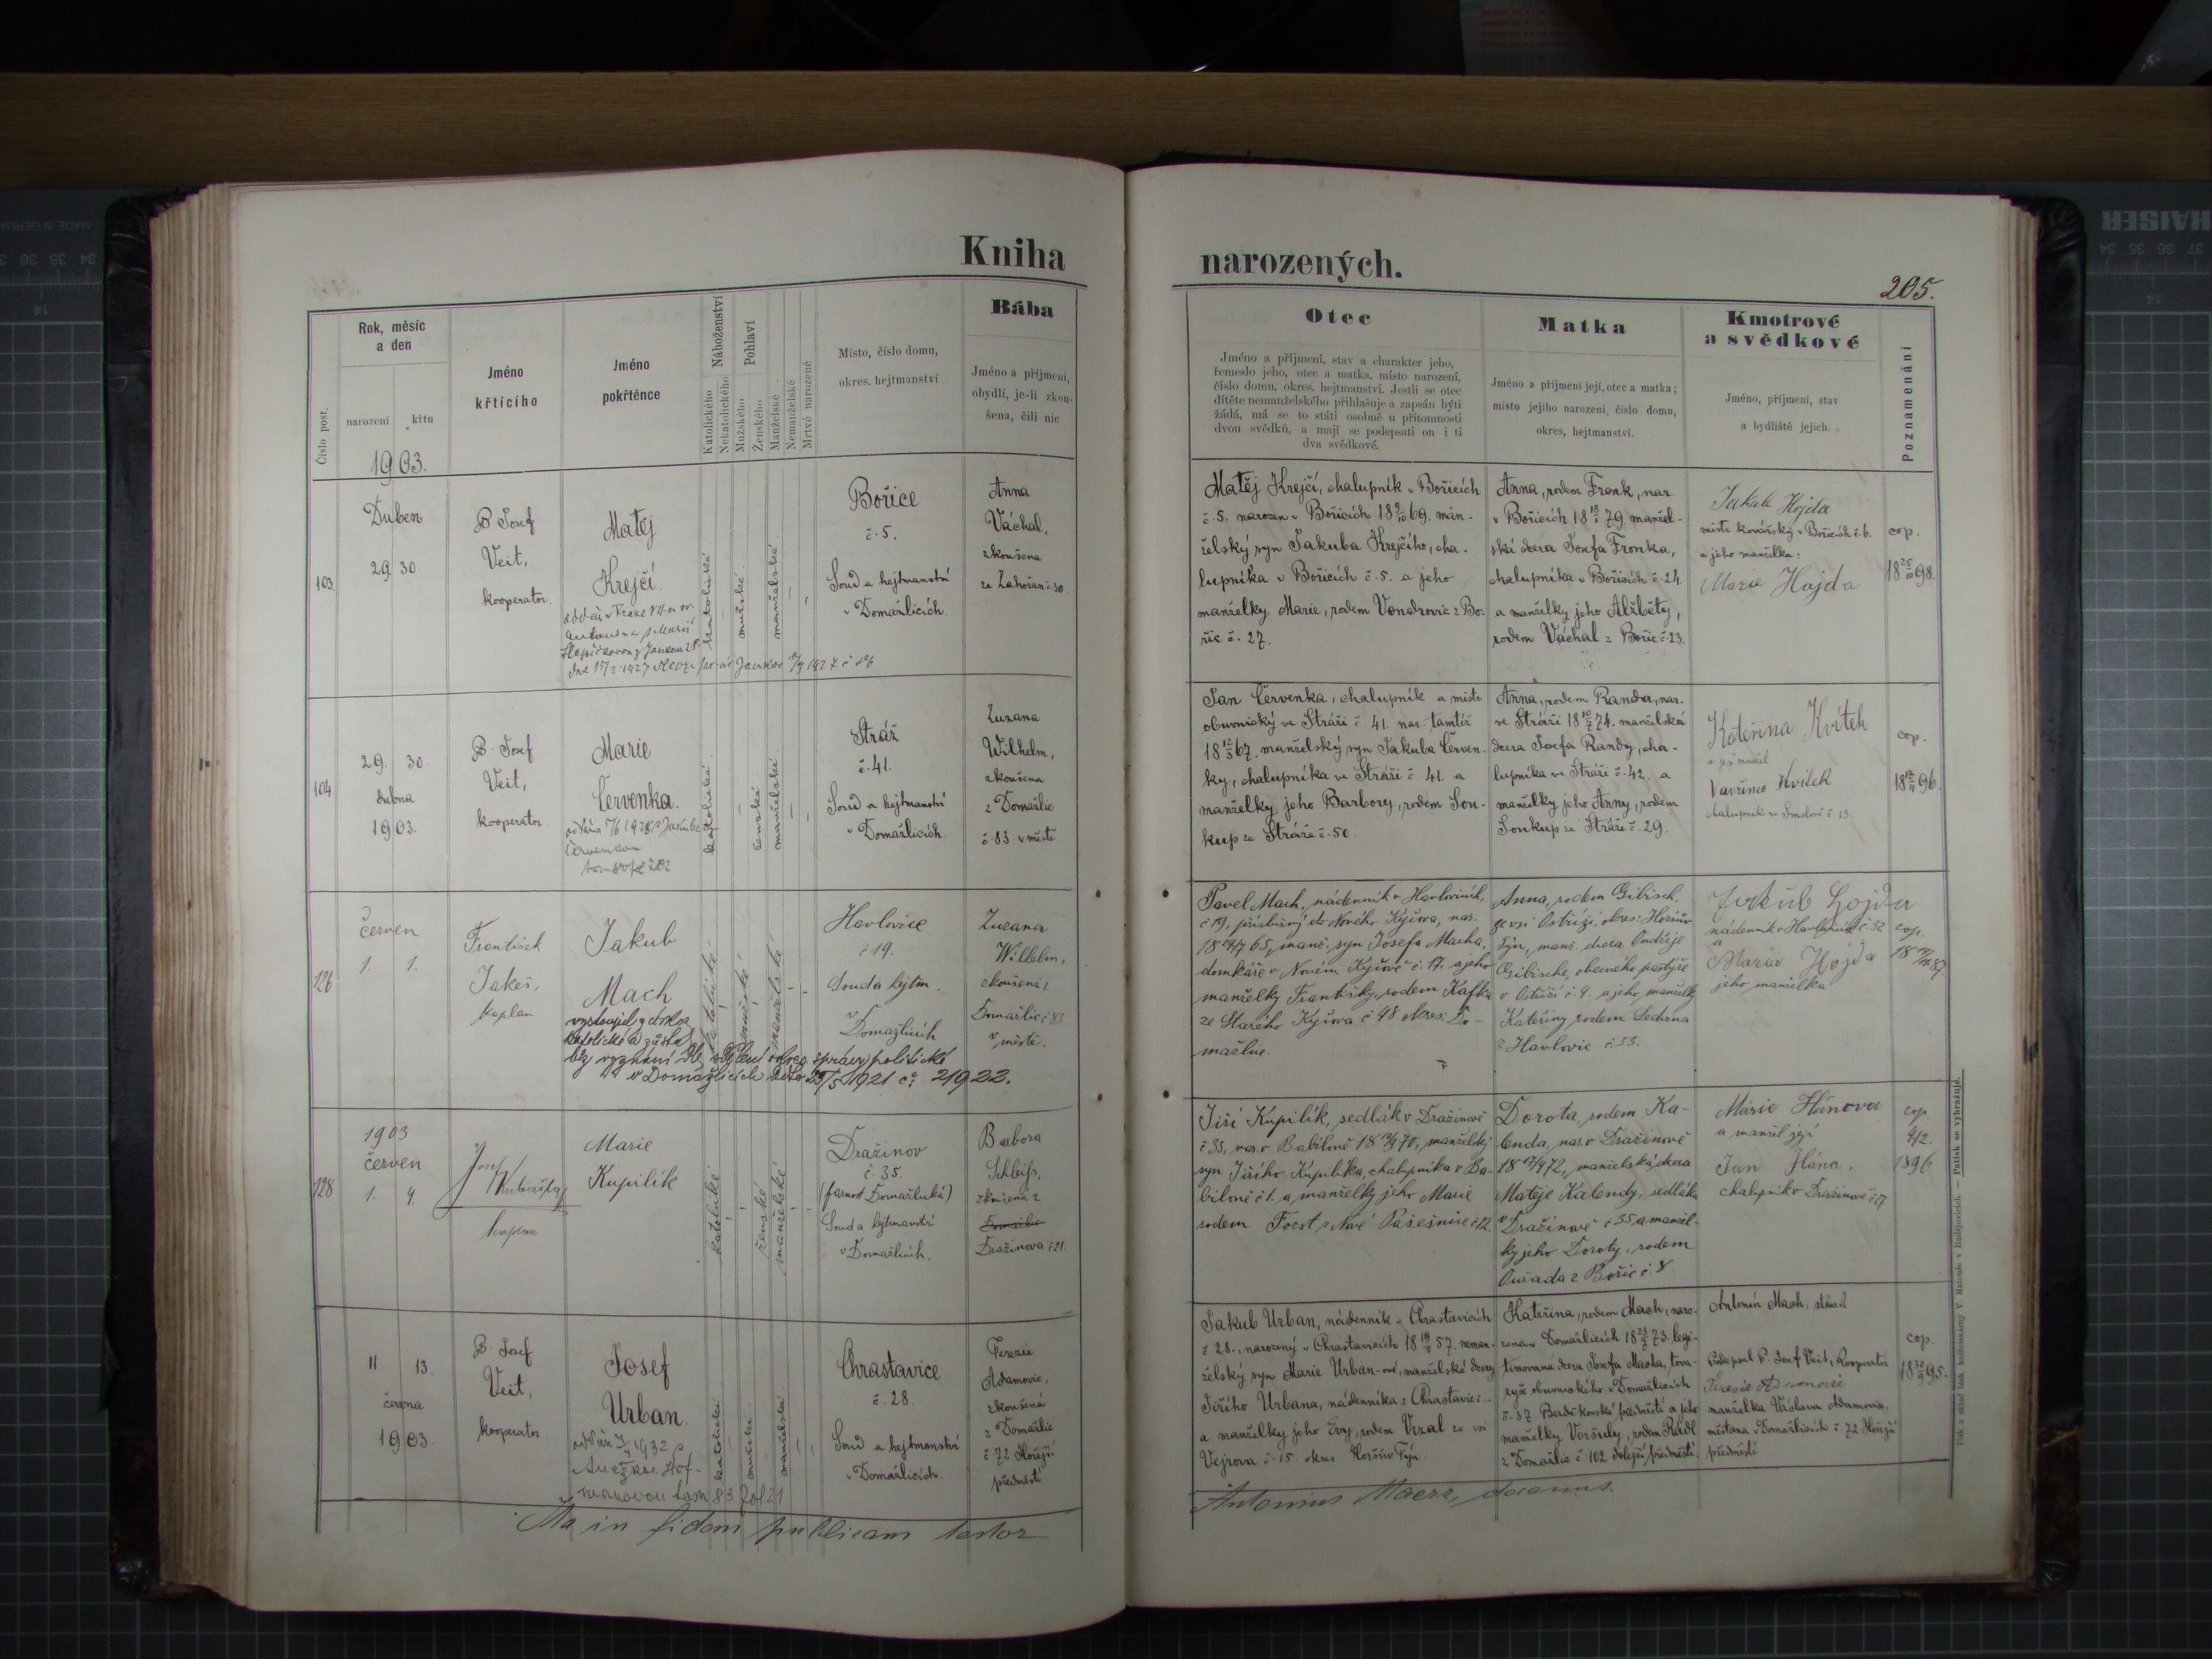 Kniha
narozených.
205.
Číslo post.
Rok, měsíc
a den
narození
křtu
1903.
Jméno
křtícího
Jméno
pokřtěnce
Náboženství
Katolického
Nekatolického
Pohlaví
Mužského
Ženského
Manželské
Nemanželské
Mrtvě narozené
Místo, číslo domu,
okres. hejtmanství
Bába
Jméno a příjmení,
obydlí, je-li zkou-
šena, čili nic
Otec
Jméno a příjmení, stav a charakter jeho,
řemeslo jeho, otec a matka, místo narození,
číslo domu, okres. hejtmanství. Jestli se otec
dítěte nemanželského přihlašuje a zapsán býti
žádá, má se to státi osobně u přítomnosti
dvou svědků, a mají se podepsati on i ti
dva svědkové.
Matka
Jméno a příjmení její, otec a matka;
místo jejího narození, číslo domu,
okres, hejtmanství.
Kmotrové
a svědkové
Jméno, příjmení, stav
a bydliště jejich.
Poznamenání
103
Duben
29. 30.
P. Josef
Veit,
kooperator.
Matěj
Krejčí.
katolické
mužské
manželské
Bořice
č. 5.
Soud a hejtmanství
v Domažlicích.
Anna
Váchal,
zkoušena
ze Zahořan č. 30
Matěj Krejčí, chalupník v Bořicích
č. 5. narozen v Bořicích 18 69. man-
želský syn Jakuba Krejčího, cha-
lupníka v Bořicích č. 5. a jeho
manželky Marie, rodem Vondrovic z Bo-
řic č. 27.
Anna, rodem Fronk, nar.
v Bořicích 18 79. manžel-
ská dcera Josefa Fronka,
chalupníka v Bořicích č. 24.
a manželky jeho Alžběty,
rodem Váchal z Bořic č. 23.
Jakub Hojda
mistr kovářský v Bořicích č. 6.
a jeho manželka:
Marie Hajda
cop.
18 25/10 98.
104
29. 30.
dubna
1903.
P. Josef
Veit,
kooperator.
Marie
Červenka.
katolické
ženské
manželské
Stráž
č. 41.
Soud a hejtmanství
v Domažlicích.
Zuzana
Wilhelm,
zkoušena
z Domažlic
č. 83 v městě
Jan Červenka, chalupník a mistr
obuvnický ve Stráži č. 41. nar. tamtéž
18 12/5 67. manželský syn Jakuba Červen-
ky, chalupníka ve Stráži č. 41. a
manželky jeho Barbory, rodem Sou-
kup ze Stráže č. 50.
Anna, rodem Randa, nar.
ve Stráži 18 74. manželská
dcera Josefa Randy, cha-
lupníka ve Stráži č. 42. a
manželky jeho Anny, rodem
Soukup ze Stráže č. 29.
Kateřina Kvítek
a její manžel
Vavřinec Kvítek
chalupník ve Smolově č. 13.
cop.
18 17/11 96.
126
červen
1. 1.
František
Jakeš,
kaplan
Jakub
Mach
vystoupil z církve
katolické a zůstal
bez vyznání dle sdělení okres. správy politické
v Domažlicích dato 23/5 1921 č: 21922.
katolické
mužské
manželské
Havlovice
č 19.
Soud a hejtm.
v
Domažlicích
Zuzana
Wilhelm,
zkoušená z
Domažlic č 83
v městě.
Pavel Mach, nádenník v Havlovicích,
č 19, příslušný do Nového Kyčova, nar.
18 65, manž. syn Josefa Macha,
domkáře v Novém Kyčově č. 17. a jeho
manželky Františky, rodem Kafka
ze Starého Kyčova č 48 okres: Do-
mažlice.
Anna, rodem Gibisch,
ze vsi Ostříží, okres: Horšův
Týn, manž. dcera Ondřeje
Gibische, obecného pastýře
v Ostříží č. 4. a jeho manželky
Kateřiny rodem Ledvina
z Havlovic č. 33.
Jakub Hojda
nádenník v Havlovicích č. 52
a
Marie Hojda
jeho manželka
cop.
128
1903
červen
1. 4.
Josef
Kubašta
kaplan
Marie
Kupilík
katolické
ženské
manželské
Dražinov
č. 35.
(farnost Domažlická)
Soud a hejtmanství
v Domažlicích.
Barbora
Schleiss,
zkoušená z
Domažlic
Dražinova č 21.
Jiří Kupilík, sedlák v Dražinově
č 35, nar. v Babiloně 18 70, manželský
syn Jiřího Kupilíka, chalupníka v Ba-
biloně č 1. a manželky jeho Marie
rodem Foest z Nové Pasečnice č 12.
Dorota, rodem Ka-
lenda, nar. v Dražinově
18 72, manželská dcera
Matěje Kalendy, sedláka
v Dražinově č 35 a manžel-
ky jeho Doroty, rodem
Ouřada z Bořic č. 8.
Marie Hánova
a manžel její
Jan Hána,
chalupník v Dražinově č 17
cop.
4/2.
1896
11 13.
června
1903.
P. Josef
Veit,
kooperator.
Josef
Urban.
katolické
mužské
manželské
Chrastavice
č. 28.
Soud a hejtmanství
v Domažlicích.
Terezie
Adamovic,
zkoušená
z Domažlic
č 72 Hořejší
předměstí
Jakub Urban, nádenník v Chrastavicích
č 28., narozený v Chrastavicích 18 57. neman-
želský syn Marie Urban-ové, manželské dcery
Jiřího Urbana, nádenníka z Chrastavic
a manželky jeho Evy, rodem Vrzal ze vsi
Vejrova č. 15. okres Horšův Týn.
Kateřina, rodem Mach, naro-
zena v Domažlicích 18 73. legi-
timovaná dcera Josefa Macha, tova-
ryše obuvnického v Domažlicích
č. 37 Bezděkovské předměstí a jeho
manželky Voršuly, rodem Rádl
z Domažlic č 102 dolejší předměstí.
Antonín Mach,
Podepsal P. Josef Veit, kooperator
Terezie Adamovic
manželka Václava Adamovic,
měšťana v Domažlicích č. 72 Hořejší
předměstí
cop.
18 95.
Ita in fidem publicam testor
Antonius Maerz, decanus.